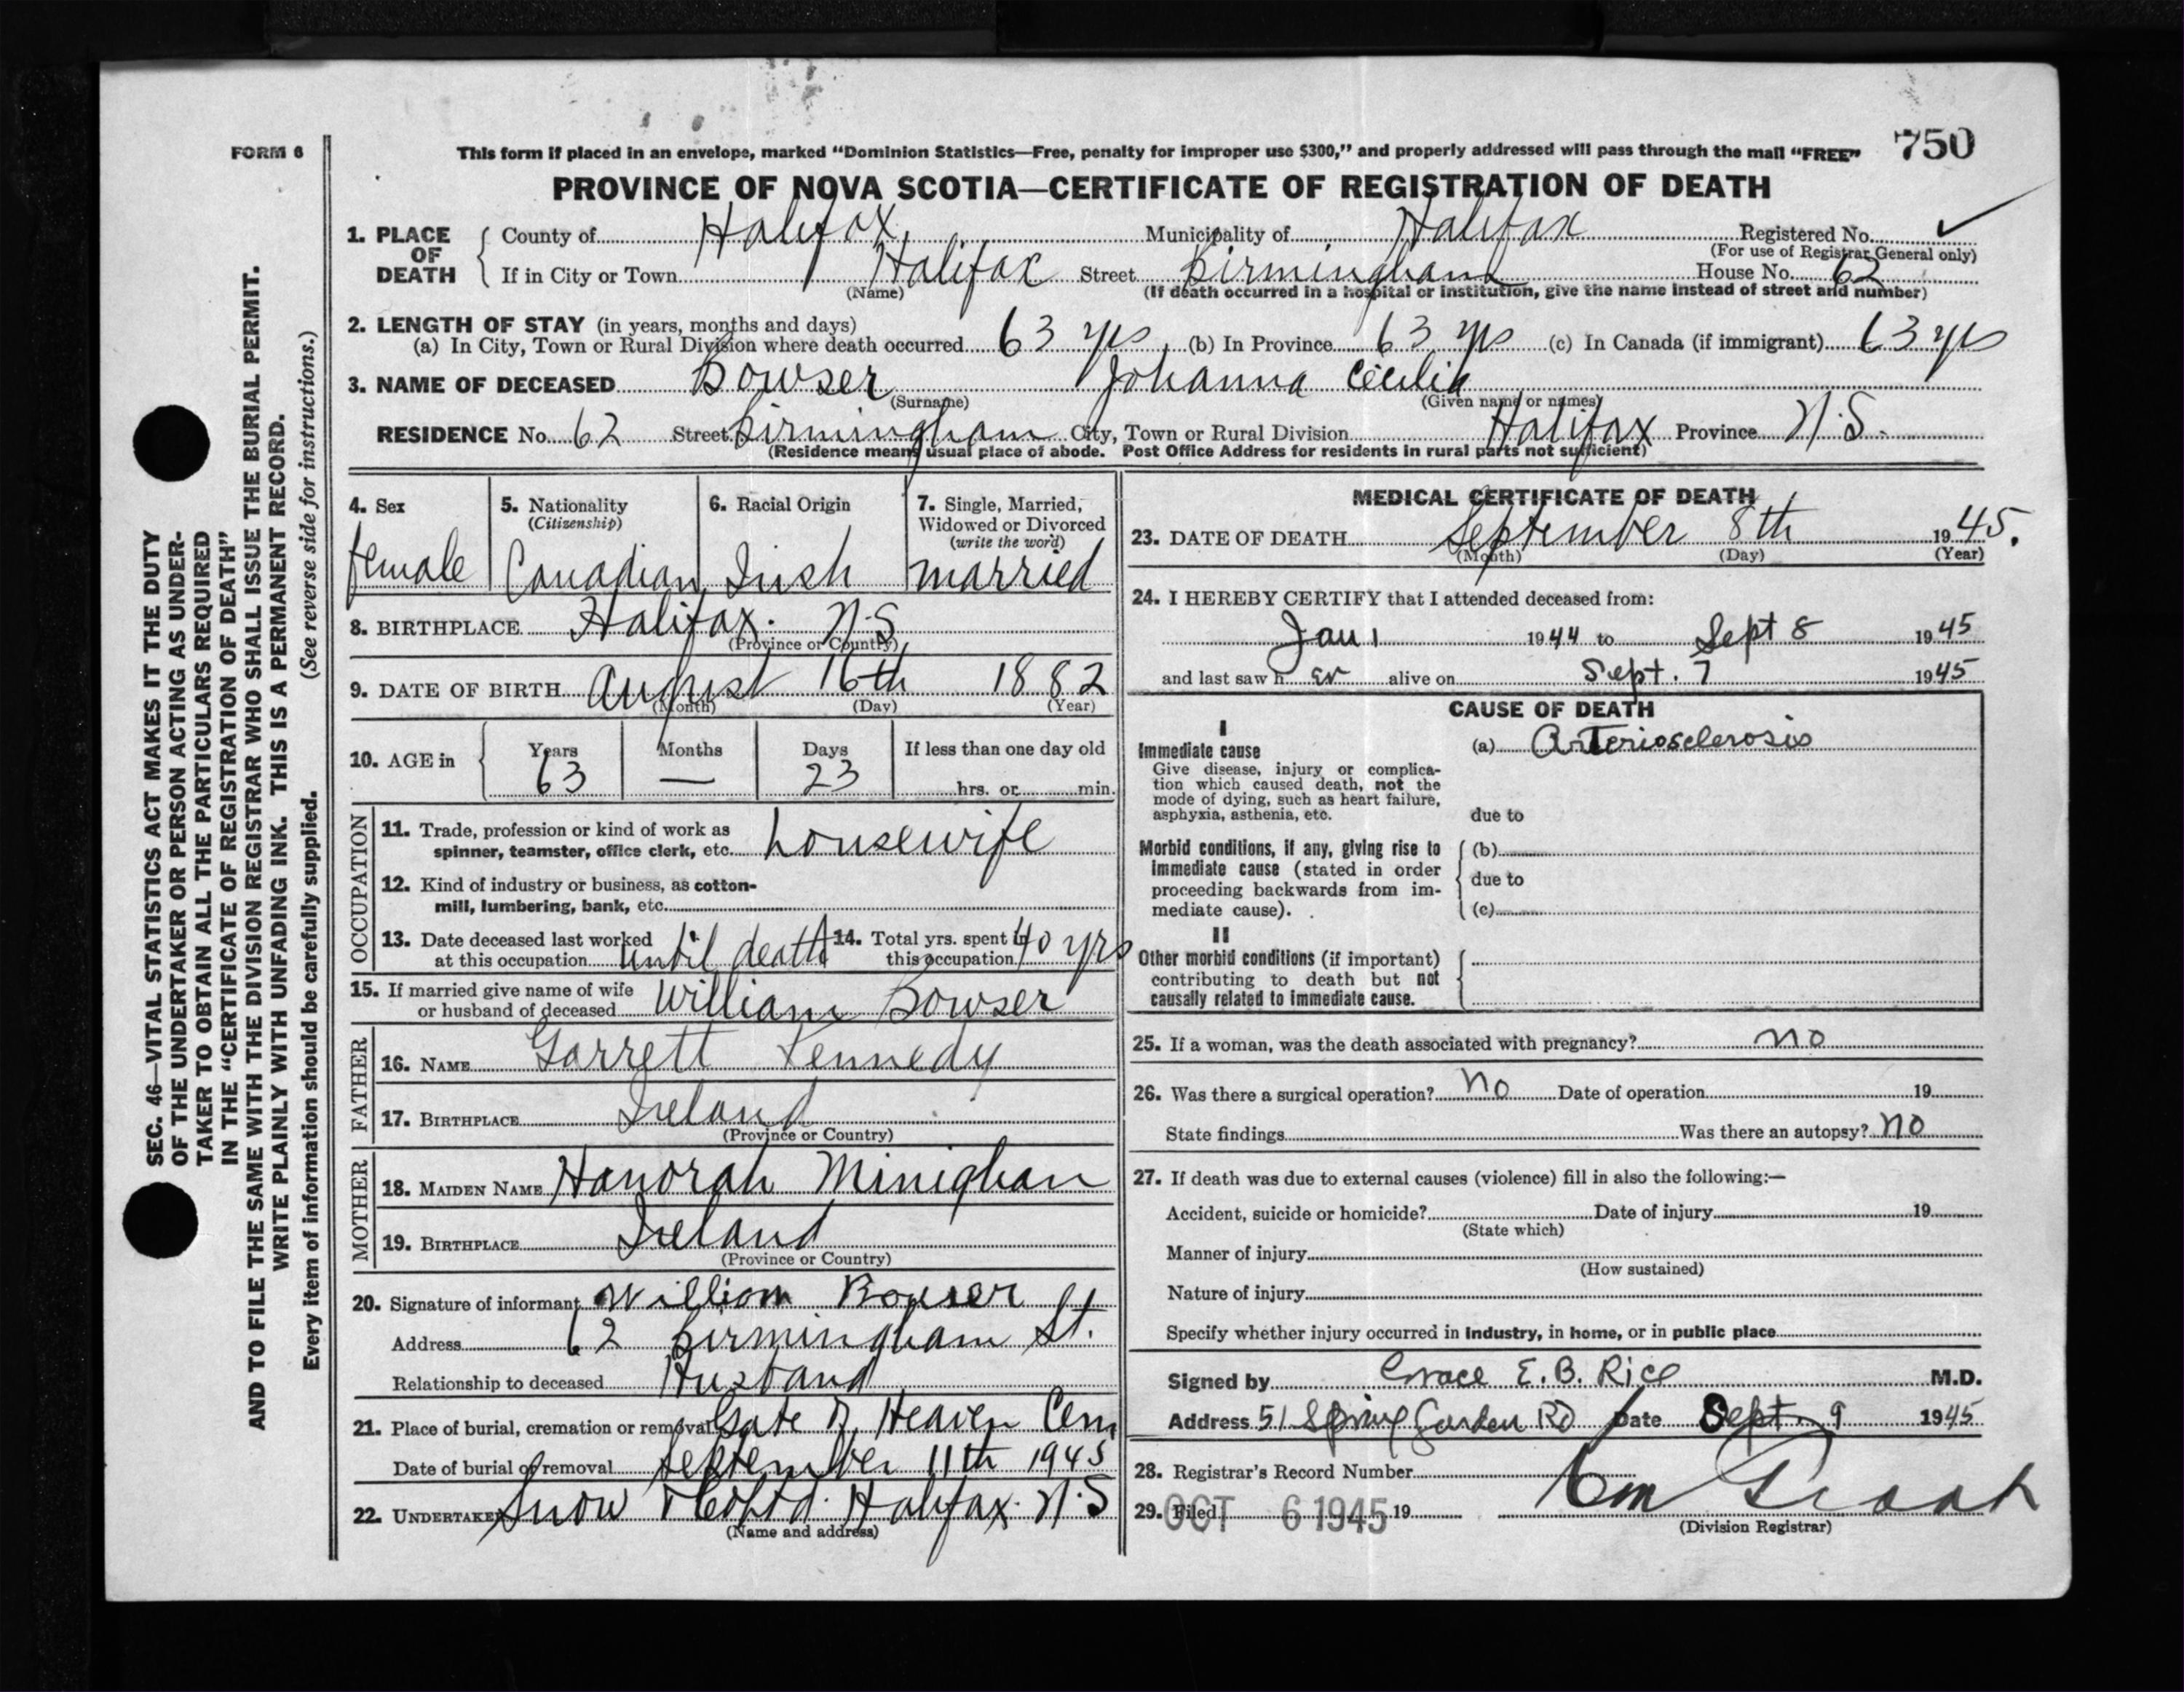 FORM 6
This form if placed in an envelope, marked "Dominion Statistics—Free, penalty for improper use $300," and properly addressed will pass through the mail "FREE"
750
PROVINCE OF NOVA SCOTIA—CERTIFICATE OF REGISTRATION OF DEATH
1. PLACE OF DEATH
County of Halifax Municipality of Halifax Registered No. ✓
(For use of Registrar General only)
If in City or Town Halifax Street Birmingham House No. 62
(Name) (If death occurred in a hospital or institution, give the name instead of street and number)
2. LENGTH OF STAY (in years, months and days)
(a) In City, Town or Rural Division where death occurred 63 yrs (b) In Province 63 yrs (c) In Canada (if immigrant) 63 yrs
3. NAME OF DECEASED Bowser Johanna Cecilia
(Surname) (Given name or names)
RESIDENCE No. 62 Street Birmingham City, Town or Rural Division Halifax Province N.S.
(Residence means usual place of abode. Post Office Address for residents in rural parts not sufficient)
4. Sex
female
5. Nationality
(Citizenship)
Canadian
6. Racial Origin
Irish
7. Single, Married,
Widowed or Divorced
(write the word)
married
8. BIRTHPLACE Halifax. N.S
(Province or Country)
9. DATE OF BIRTH August 16th 1882
(Month) (Day) (Year)
10. AGE in
Years Months Days If less than one day old
63 — 23 hrs. or min.
OCCUPATION
11. Trade, profession or kind of work as
spinner, teamster, office clerk, etc. housewife
12. Kind of industry or business, as cotton-
mill, lumbering, bank, etc.
13. Date deceased last worked
at this occupation until death
14. Total yrs. spent in
this occupation 40 yrs
15. If married give name of wife
or husband of deceased William Bowser
FATHER
16. NAME Garrett Kennedy
17. BIRTHPLACE Ireland
(Province or Country)
MOTHER
18. MAIDEN NAME Hanorah Minighan
19. BIRTHPLACE Ireland
(Province or Country)
20. Signature of informant William Bowser
Address 62 Birmingham St.
Relationship to deceased Husband
21. Place of burial, cremation or removal Gate of Heaven Cem
Date of burial or removal September 11th 1945
22. UNDERTAKER Snow & Co Ltd. Halifax. N.S
(Name and address)
MEDICAL CERTIFICATE OF DEATH
23. DATE OF DEATH September 8th 1945.
(Month) (Day) (Year)
24. I HEREBY CERTIFY that I attended deceased from:
Jan 1 1944 to Sept 8 1945
and last saw h er alive on Sept. 7 1945
CAUSE OF DEATH
I
Immediate cause
Give disease, injury or complica-
tion which caused death, not the
mode of dying, such as heart failure,
asphyxia, asthenia, etc.
(a) Arteriosclerosis
due to
Morbid conditions, if any, giving rise to
immediate cause (stated in order
proceeding backwards from im-
mediate cause).
(b)
due to
(c)
II
Other morbid conditions (if important)
contributing to death but not
causally related to immediate cause.
25. If a woman, was the death associated with pregnancy? no
26. Was there a surgical operation? No Date of operation 19
State findings Was there an autopsy? no
27. If death was due to external causes (violence) fill in also the following:—
Accident, suicide or homicide? Date of injury 19
(State which)
Manner of injury
(How sustained)
Nature of injury
Specify whether injury occurred in industry, in home, or in public place
Signed by Grace E. B. Rice M.D.
Address 51 Spring Garden Rd Date Sept. 9 1945
28. Registrar's Record Number
29. Filed OCT 6 1945 19
(Division Registrar)
SEC. 46—VITAL STATISTICS ACT MAKES IT THE DUTY
OF THE UNDERTAKER OR PERSON ACTING AS UNDER-
TAKER TO OBTAIN ALL THE PARTICULARS REQUIRED
IN THE "CERTIFICATE OF REGISTRATION OF DEATH"
AND TO FILE THE SAME WITH THE DIVISION REGISTRAR WHO SHALL ISSUE THE BURIAL PERMIT.
WRITE PLAINLY WITH UNFADING INK. THIS IS A PERMANENT RECORD.
Every item of information should be carefully supplied. (See reverse side for instructions.)